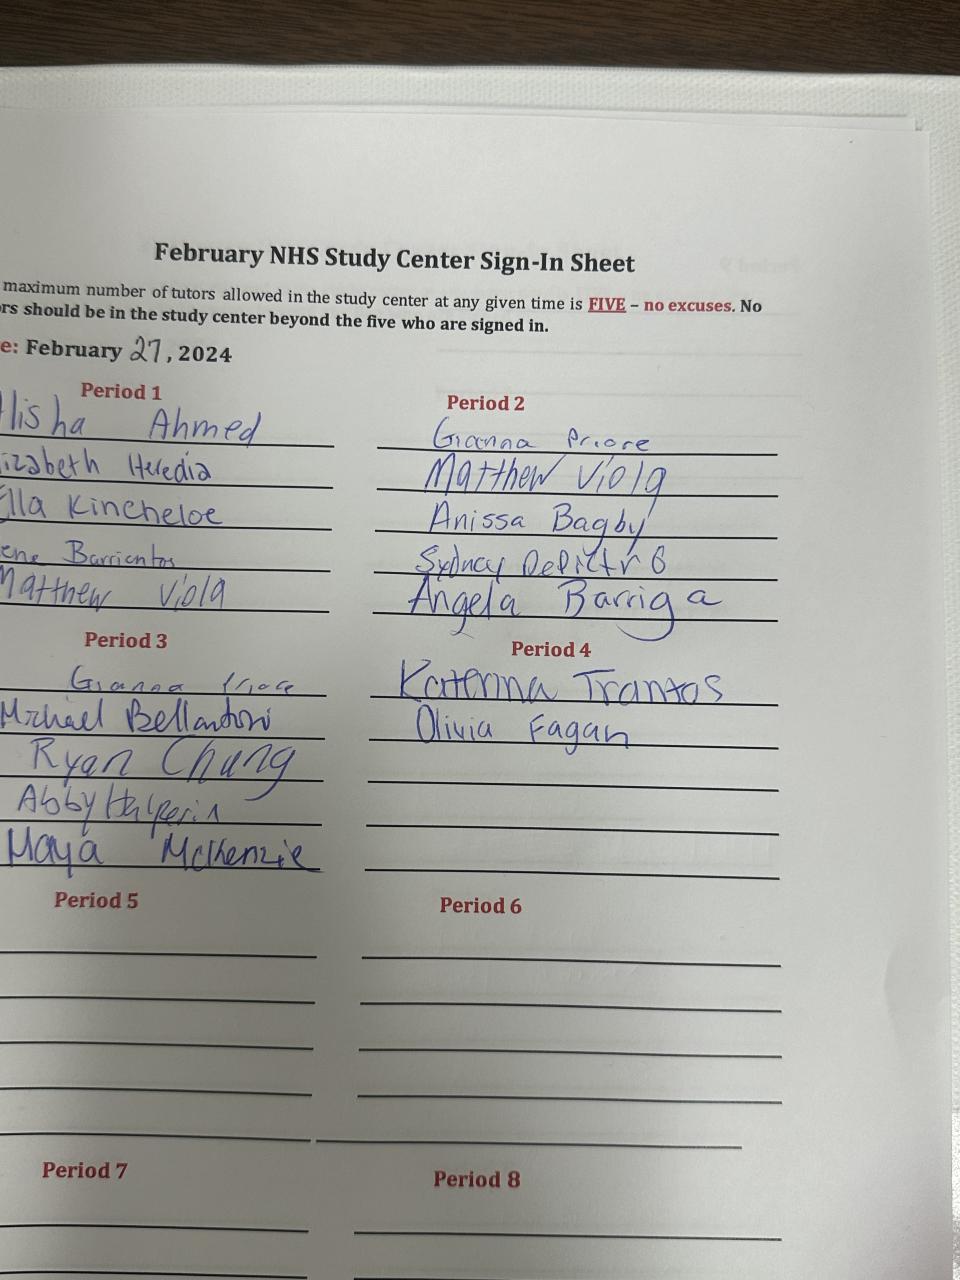 February NHS Study Center Sign-In Sheet
maximum number of tutors allowed in the study center at any given time is FIVE – no excuses. No
rs should be in the study center beyond the five who are signed in.
e: February 27, 2024
Period 1
lisha Ahmed
izabeth Heredia
Ella Kincheloe
ene Barrientos
Matthew Viola
Period 2
Gianna Priore
Matthew Viola
Anissa Bagby
Sydney DePietro
Angela Barriga
Period 3
Gianna Priore
Michael Bellantoni
Ryan Chung
Abby Halperin
Maya McKenzie
Period 4
Katerina Trantos
Olivia Fagan
Period 5
Period 6
Period 7
Period 8